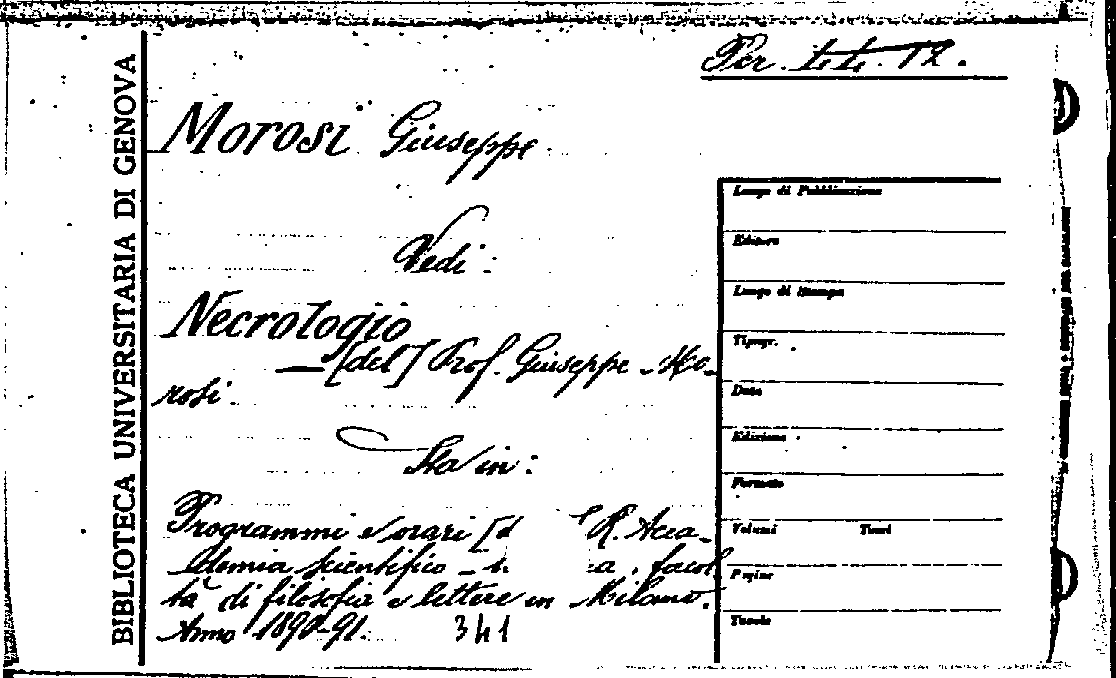 BIBLIOTECA UNIVERSITARIA DI GENOVA
Per. tt. 12.
Morosi Giuseppe
Vedi:
Necrologio
— [del] Prof. Giuseppe Mo-
rosi.
Sta in:
Programmi e orari [d R. Acca-
demia scientifico - a. facol
tà di filosofia e lettere in Milano.
Anno 1890-91. 341
Luogo di Pubblicazione
Editore
Luogo di Stampa
Tipogr.
Data
Edizione
Formato
Volumi Tomi
Pagine
Tavole